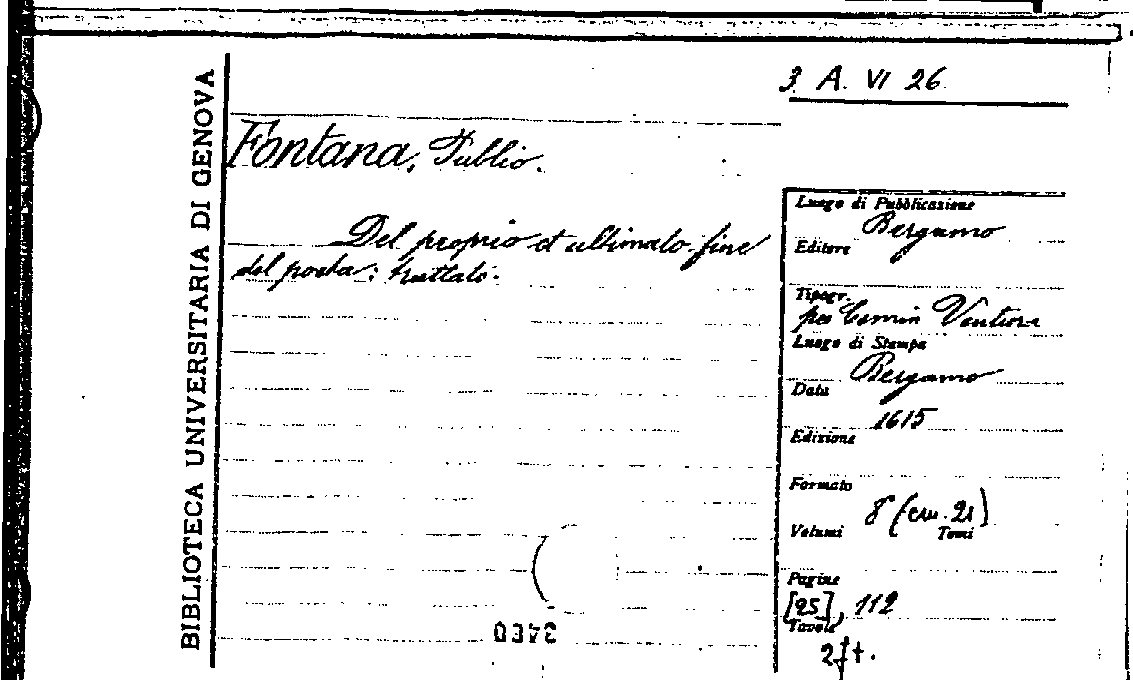 3 A. VI 26
BIBLIOTECA UNIVERSITARIA DI GENOVA
Fontana, Publio.
Del proprio et ultimato fine
del poeta: trattato.
Luogo di Pubblicazione
Bergamo
Editore
Tipogr.
per Comin Ventura
Luogo di Stampa
Bergamo
Data
1615
Edizione
Formato
8° (cm. 21)
Volumi Tomi
Pagine
[25], 112
Tavole
2 f t.